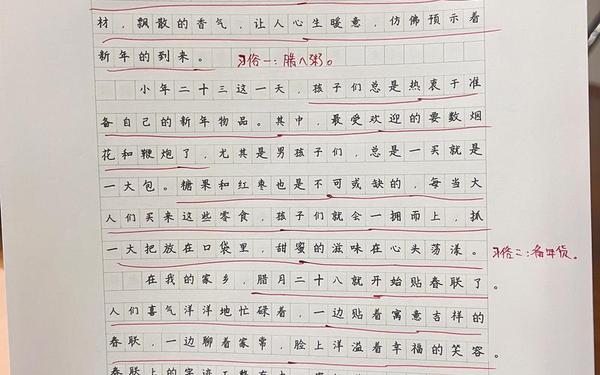 材，飘散的香气，让人心生暖意，仿佛预示着
新年的到来。
习俗一：腊八粥。
小年二十三这一天，孩子们总是热衷于准
备自己的新年物品。其中，最受欢迎的要数烟
花和鞭炮了，尤其是男孩子们，总是一买就是
一大包。糖果和红枣也是不可或缺的，每当大
人们买来这些零食，孩子们就会一拥而上，抓
一大把放在口袋里，甜蜜的滋味在心头荡漾。
习俗二：备年货。
在我的家乡，腊月二十八就开始贴春联了。
人们喜气洋洋地忙碌着，一边贴着寓意吉祥的
春联，一边聊着家常，脸上洋溢着幸福的笑容。
春联上的字迹工整有力